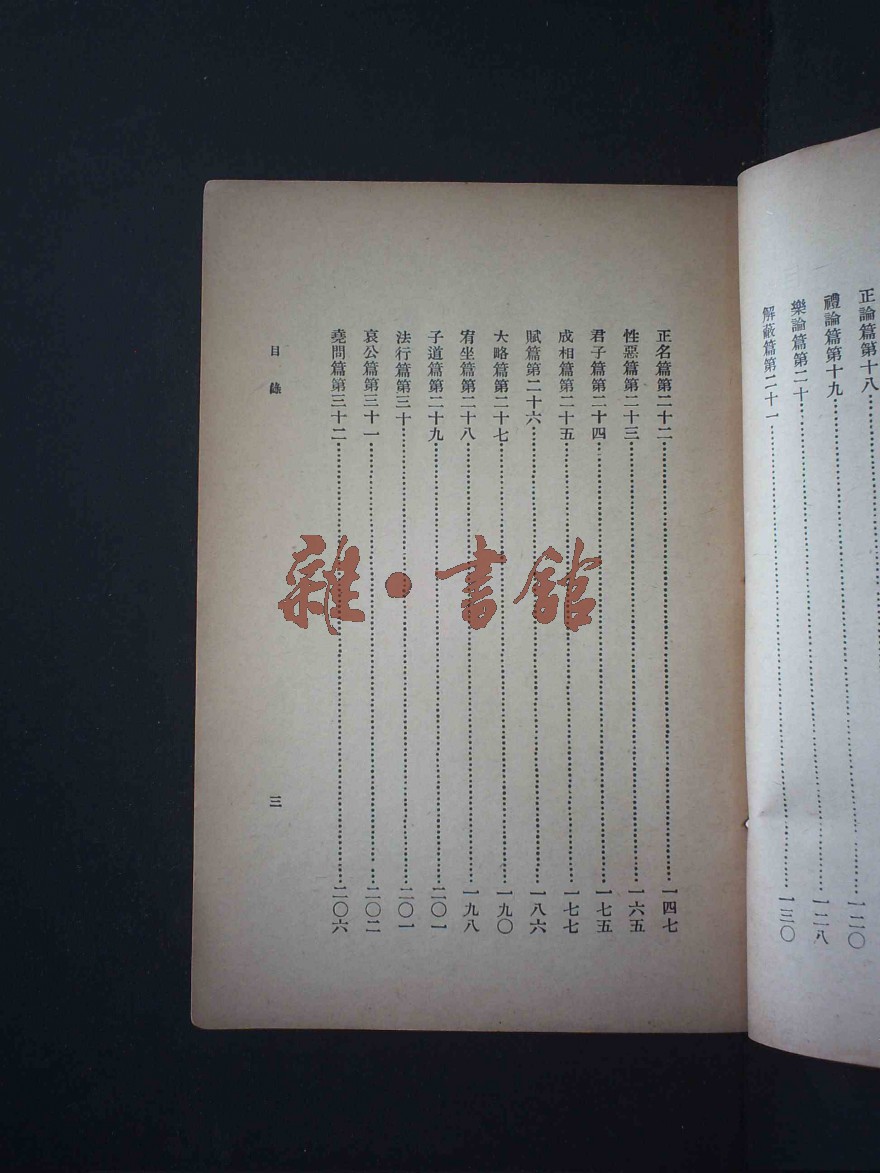 正論篇第十八
禮論篇第十九……一二〇
樂論篇第二十……一二八
解蔽篇第二十一……一三〇
正名篇第二十二……一四七
性惡篇第二十三……一六五
君子篇第二十四……一七五
成相篇第二十五……一七七
賦篇第二十六……一八六
大略篇第二十七……一九〇
宥坐篇第二十八……一九八
子道篇第二十九……二〇一
法行篇第三十……二〇一
哀公篇第三十一……二〇二
堯問篇第三十二……二〇六
目錄
三
雜·書館